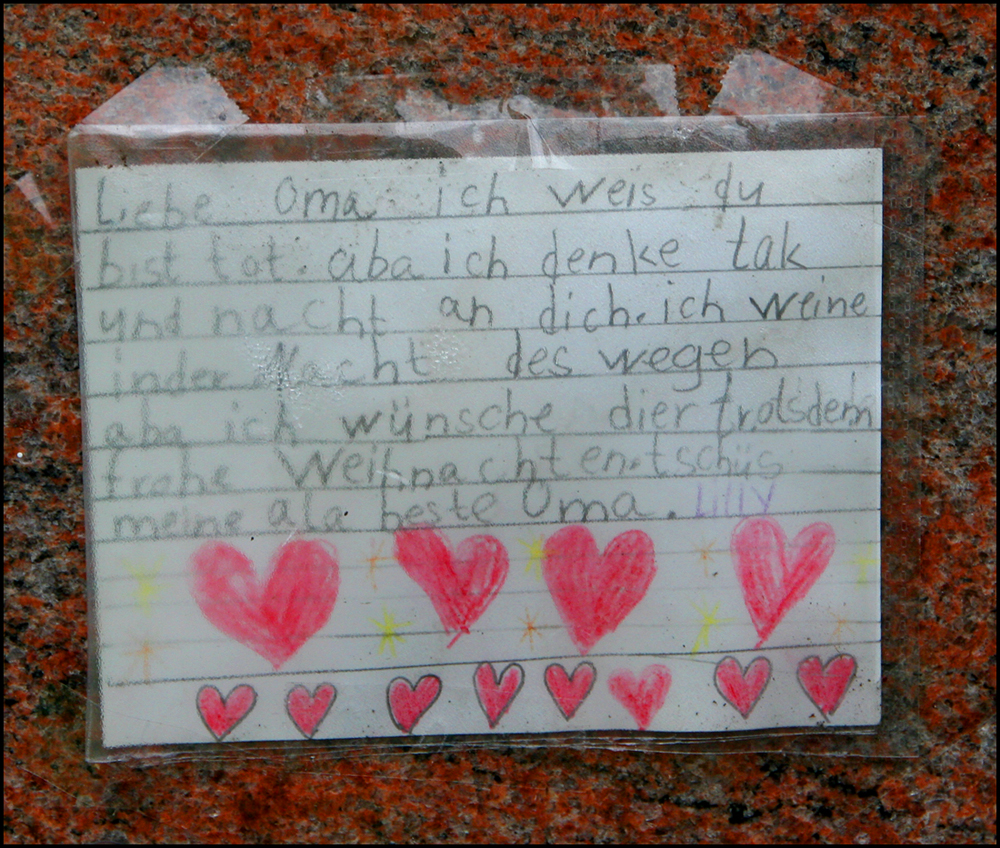 Liebe Oma ich weis du
bist tot. aba ich denke tak
und nacht an dich. ich weine
inder Nacht des wegen
aba ich wünsche dier trotsdem
frohe Weihnachten. tschüs
meine ala beste Oma. Lilly